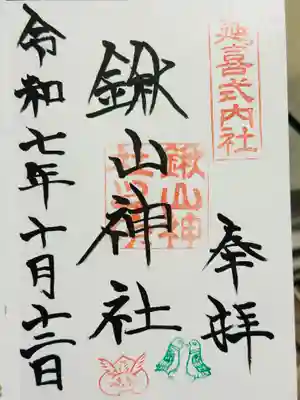 延喜式内社
奉拝
鍬山神社
鍬山神社之印
令和七年十月十二日